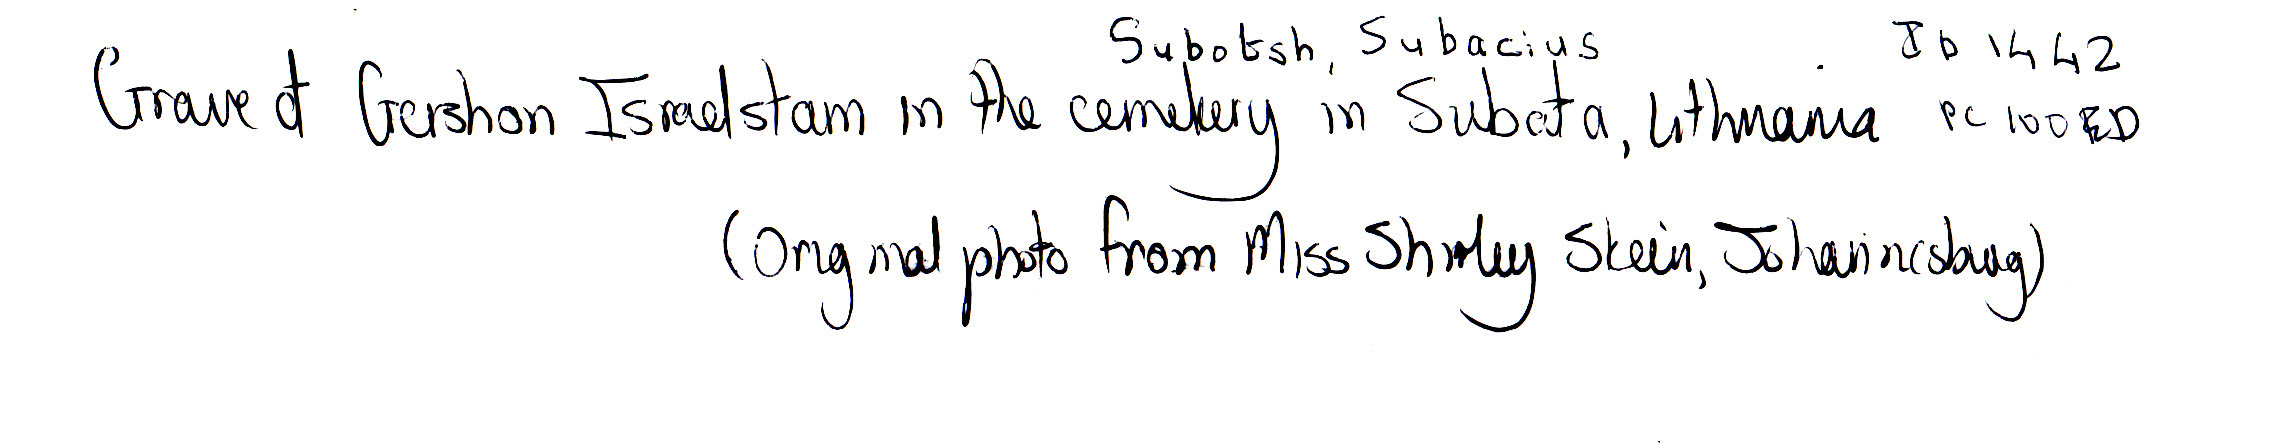 Subotsh, Subacius ID 1442
Grave of Gershon Israelstam in the cemetery in Subata, Lithuania PC 100 ED
(Original photo from Miss Shirley Stein, Johannesburg)